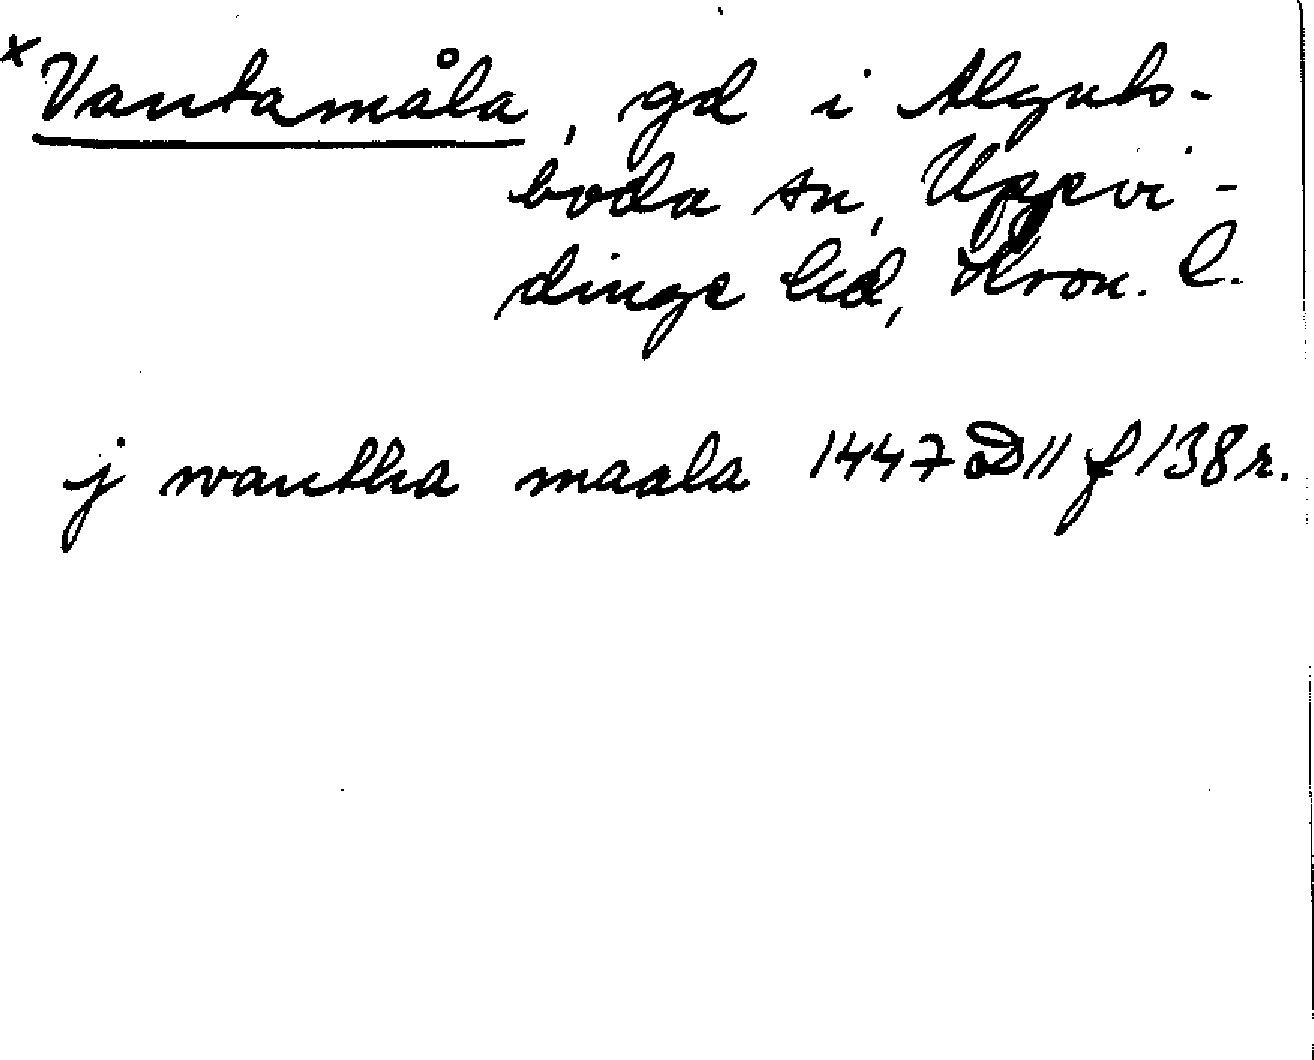 × Vantamåla, gd i Alguts-
boda sn, Uppvi-
dinge hd, Kron. l.
j wantha maala 1447 D11 f 138r.